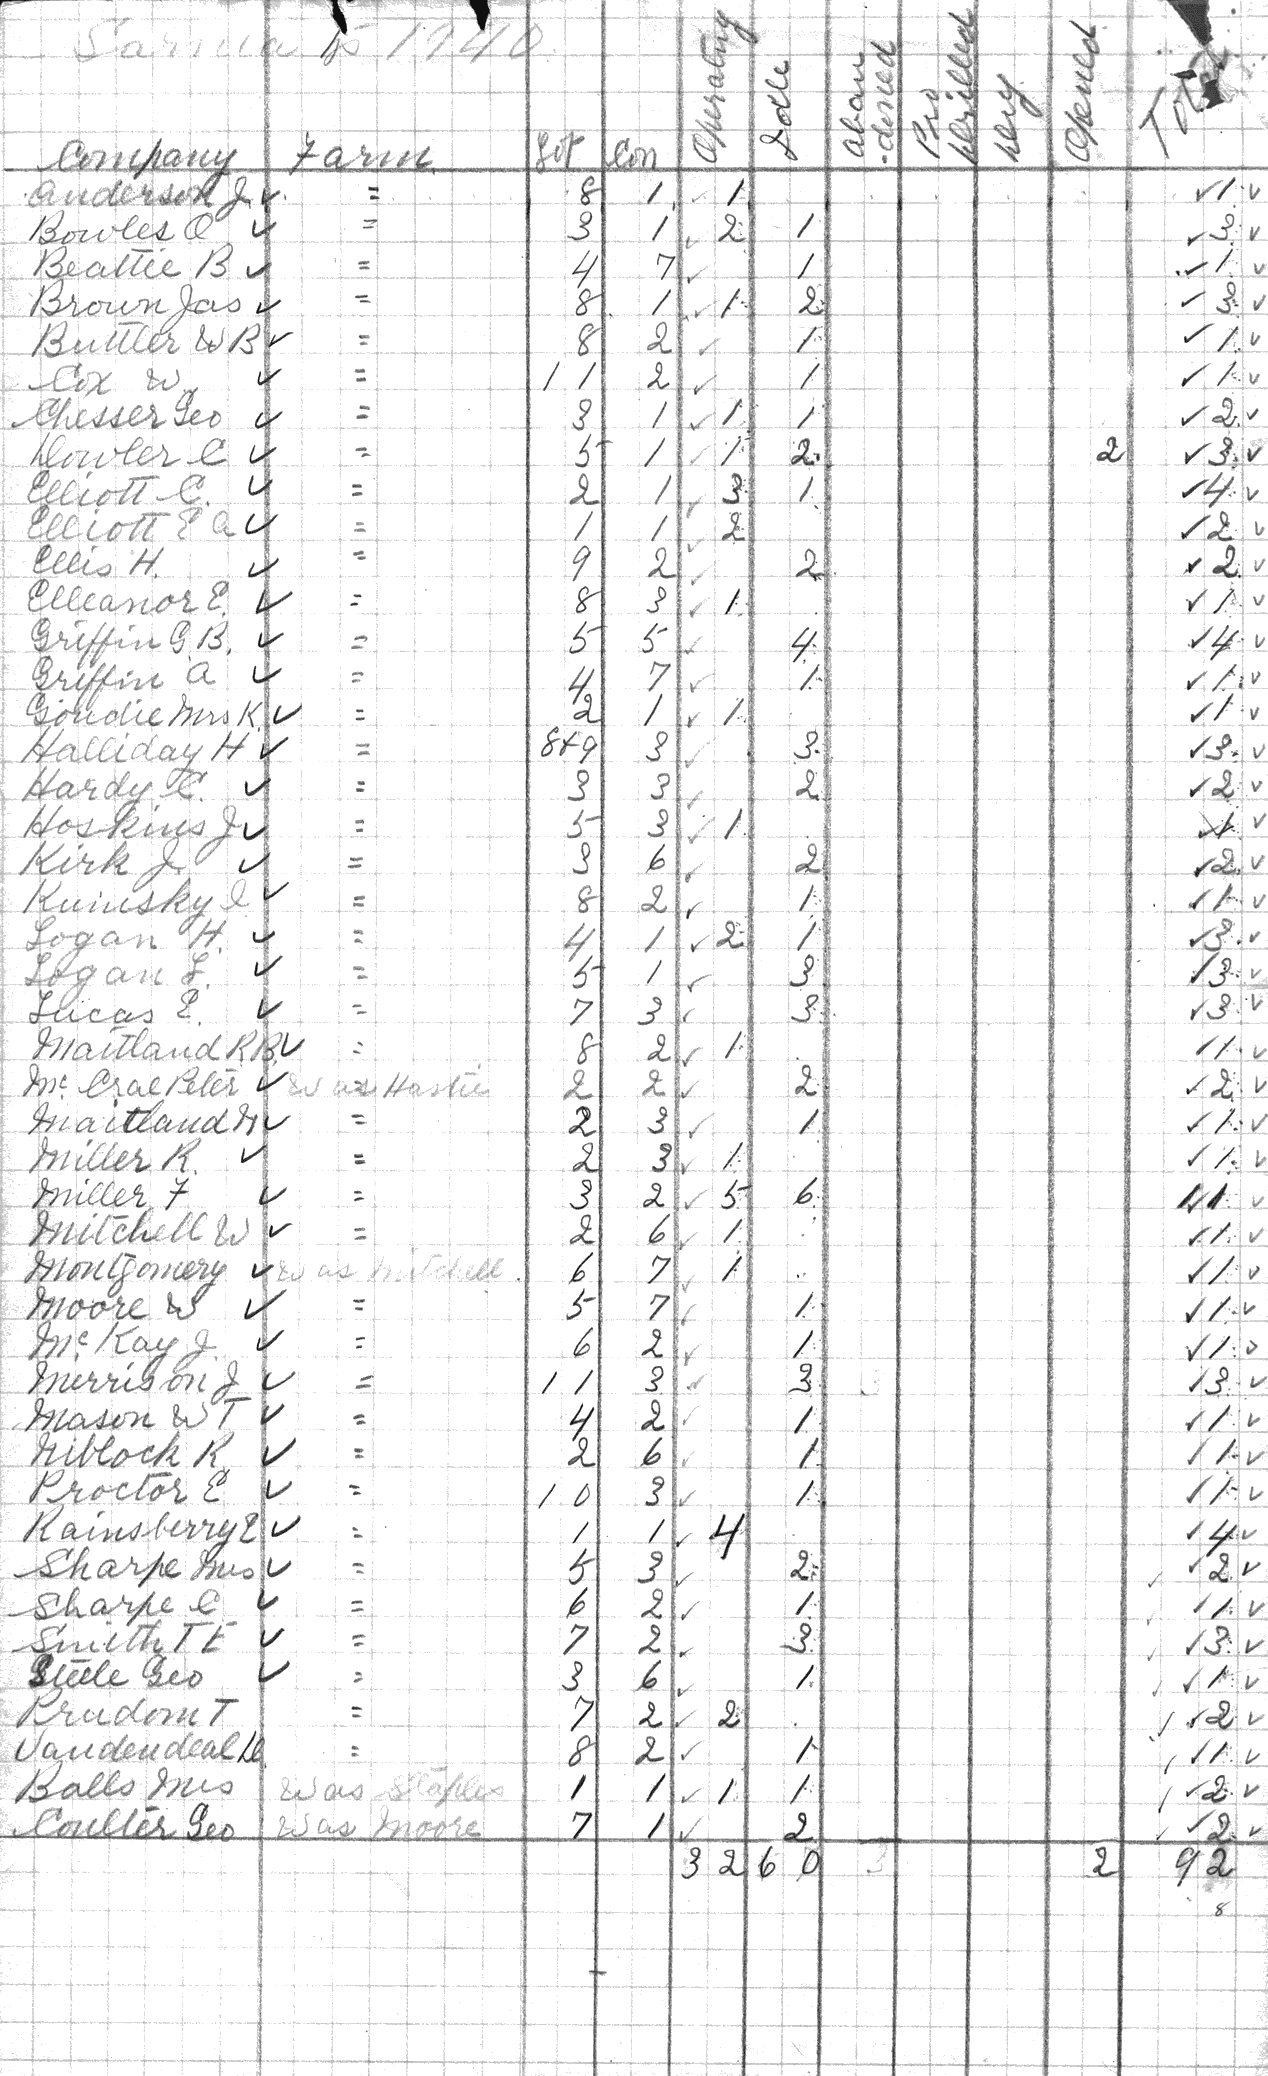 Sarnia 1940
Company Farm Lot Con Operating Idle aban-doned Pro Drilled Dry Opened Total
Anderson J. ✓ = 8 1 ✓ 1 ✓ 1 ✓
Bowles O ✓ = 3 1 ✓ 2 1 ✓ 3 ✓
Beattie B ✓ = 4 7 ✓ 1 ✓ 1 ✓
Brown Jas ✓ = 8 1 ✓ 1 2 ✓ 3 ✓
Buttler W B ✓ = 8 2 ✓ 1 ✓ 1 ✓
Cox W. ✓ = 11 2 ✓ 1 ✓ 1 ✓
Chesser Geo ✓ = 3 1 ✓ 1 1 ✓ 2 ✓
Dowler C ✓ = 5 1 ✓ 1 2 2 ✓ 3 ✓
Elliott C. ✓ = 2 1 ✓ 3 1 ✓ 4 ✓
Elliott E A ✓ = 1 1 ✓ 2 ✓ 2 ✓
Ellis H. ✓ = 9 2 ✓ 2 ✓ 2 ✓
Elleanor E. ✓ = 8 3 ✓ 1 ✓ 1 ✓
Griffin G.B. ✓ = 5 5 ✓ 4 ✓ 4 ✓
Griffin A ✓ = 4 7 ✓ 1 ✓ 1 ✓
Goudie Mrs K. ✓ = 2 1 ✓ 1 ✓ 1 ✓
Halliday H ✓ = 8+9 3 ✓ 3 ✓ 3 ✓
Hardy C. ✓ = 3 3 ✓ 2 ✓ 2 ✓
Hoskins J ✓ = 5 3 ✓ 1 ✓ 1 ✓
Kirk J. ✓ = 3 6 ✓ 2 ✓ 2 ✓
✓ = 8 2 ✓ 1 ✓ 1 ✓
Logan H. ✓ = 4 1 ✓ 2 1 ✓ 3 ✓
Logan L. ✓ = 5 1 ✓ 3 ✓ 3 ✓
Lucas E. ✓ = 7 3 ✓ 3 ✓ 3 ✓
Maitland R.B. ✓ = 8 2 ✓ 1 ✓ 1 ✓
Mc Crae Peter ✓ Was Hastie 2 2 ✓ 2 ✓ 2 ✓
Maitland ✓ = 2 3 ✓ 1 ✓ 1 ✓
Miller R. ✓ = 2 3 ✓ 1 ✓ 1 ✓
Miller F ✓ = 3 2 ✓ 5 6 11 ✓
Mitchell W ✓ = 2 6 ✓ 1 ✓ 1 ✓
Montgomery ✓ Was Mitchell 6 7 ✓ 1 ✓ 1 ✓
Moore W ✓ = 5 7 ✓ 1 ✓ 1 ✓
Mc Kay J. ✓ = 6 2 ✓ 1 ✓ 1 ✓
Merrison J ✓ = 11 3 ✓ 3 ✓ 3 ✓
Mason W T ✓ = 4 2 ✓ 1 ✓ 1 ✓
Niblock R ✓ = 2 6 ✓ 1 ✓ 1 ✓
Proctor E ✓ = 10 3 ✓ 1 ✓ 1 ✓
Rainsberry E ✓ = 1 1 ✓ 4 ✓ 4 ✓
Sharpe Mrs ✓ = 5 3 ✓ 2 ✓ 2 ✓
Sharpe C ✓ = 6 2 ✓ 1 ✓ 1 ✓
Smith T E ✓ = 7 2 ✓ 3 ✓ 3 ✓
Steele Geo ✓ = 3 6 ✓ 1 ✓ 1 ✓
Prudom T = 7 2 ✓ 2 ✓ 2 ✓
Vandendeal = 8 2 ✓ 1 ✓ 1 ✓
Balls Mrs Was Staples 1 1 ✓ 1 1 ✓ 2 ✓
Coulter Geo Was Moore 7 1 ✓ 2 ✓ 2 ✓
32 60 2 92
8